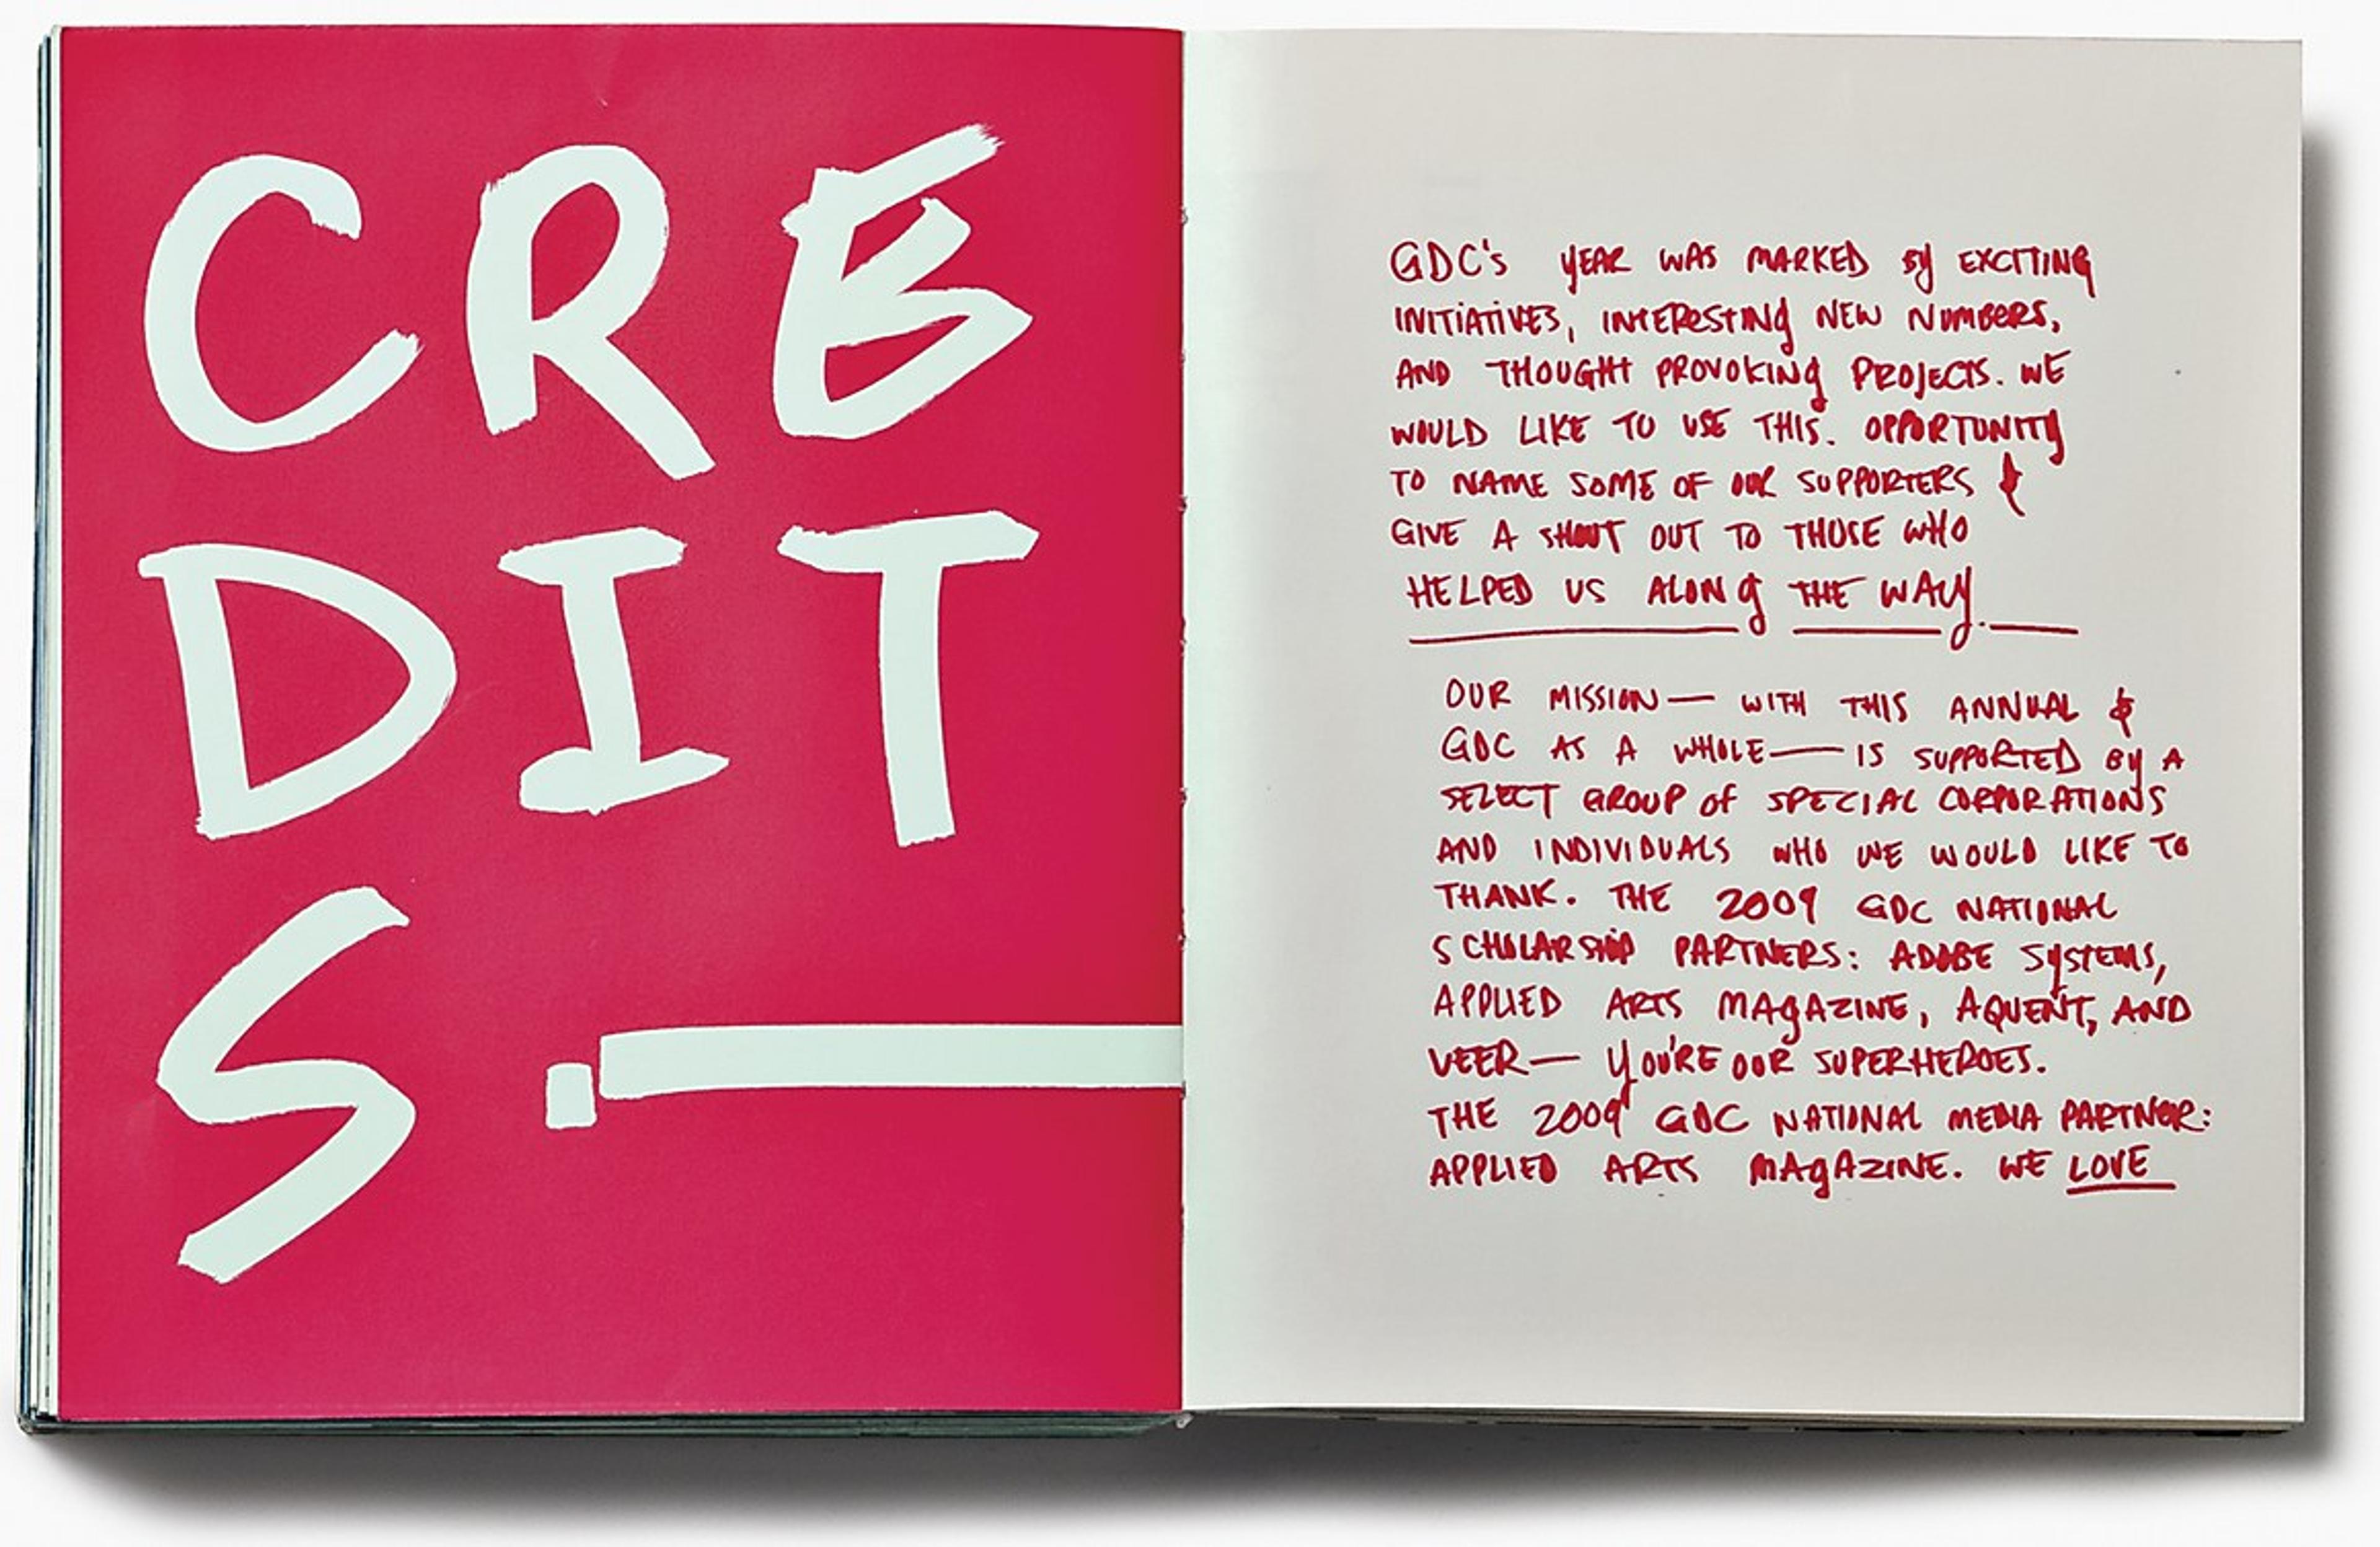 CRE
DIT
S.—
GDC's YEAR WAS MARKED By EXCITING
INITIATIVES, INTERESTING NEW NUMBERS,
AND THOUGHT PROVOKING PROJECTS. WE
WOULD LIKE TO USE THIS. OPPORTUNITY
TO NAME SOME OF OUR SUPPORTERS &
GIVE A SHOUT OUT TO THOSE WHO
HELPED US ALONG THE WAY.—
OUR MISSION— WITH THIS ANNUAL &
GDC AS A WHOLE— IS SUPPORTED BY A
SELECT GROUP OF SPECIAL CORPORATIONS
AND INDIVIDUALS WHO WE WOULD LIKE TO
THANK. THE 2009 GDC NATIONAL
SCHOLARSHIP PARTNERS: ADOBE SYSTEMS,
APPLIED ARTS MAGAZINE, AQUENT, AND
VEER— YOU'RE OUR SUPERHEROES.
THE 2009 GDC NATIONAL MEDIA PARTNER:
APPLIED ARTS MAGAZINE. WE LOVE